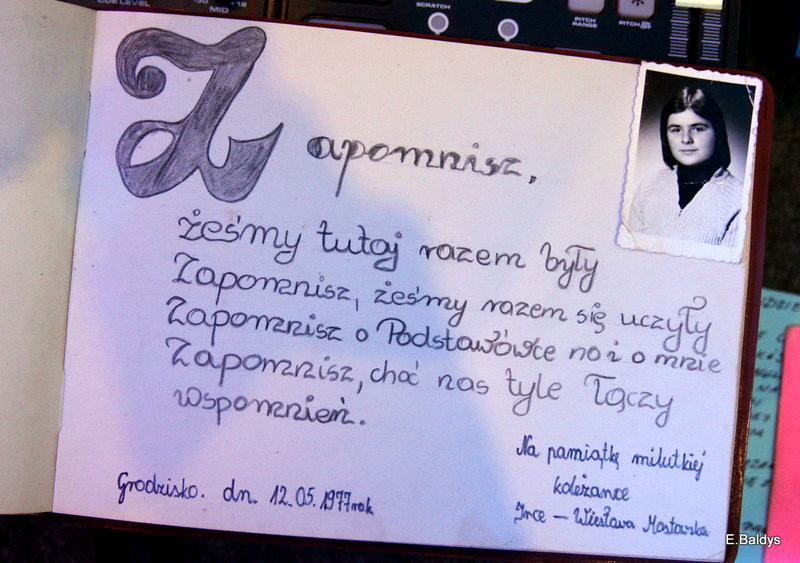 CUE LEVEL
MID
SCRATCH
PITCH RANGE
PITCH ON/OFF
Zapomnisz,
żeśmy tutaj razem były
Zapomnisz, żeśmy razem się uczyły
Zapomnisz o Podstawówce no i o mnie
Zapomnisz, choć nas tyle łączy
wspomnień.
Na pamiątkę milutkiej
koleżance
Irce – Wiesława Mostawska
Grodzisko. dn. 12.05.1977rok
E.Baldys